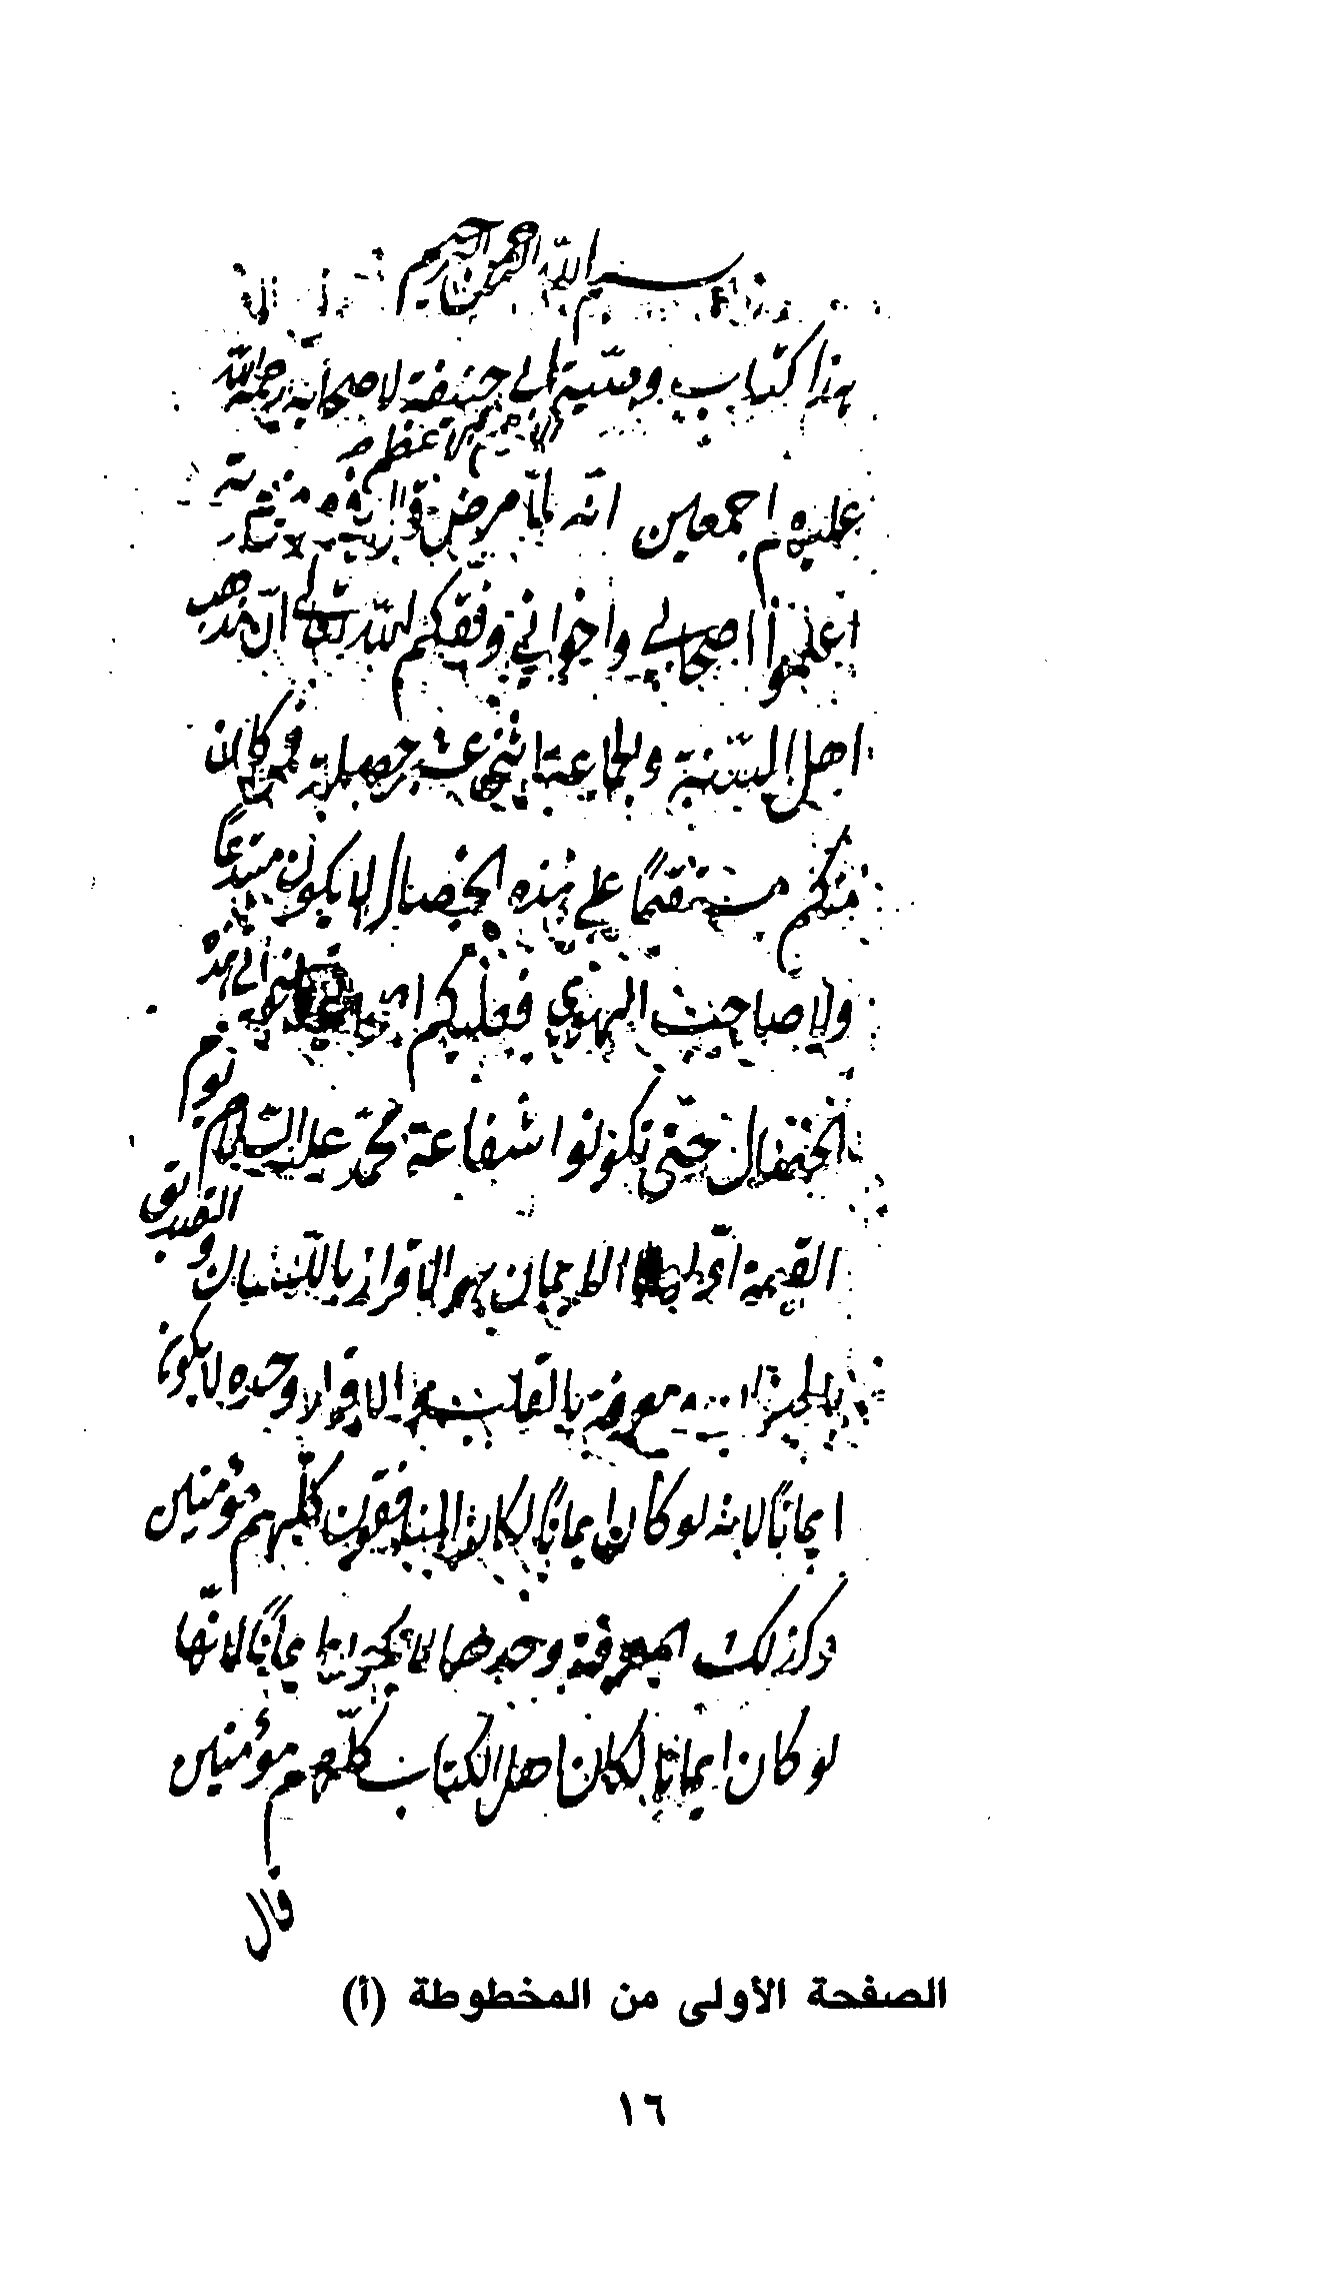 بسم الله الرحمن الرحيم
هذا كتاب وصية ابي حنيفة لاصحابه رحمة الله
الاعظم
عليهم اجمعين انه لما مرض قال
اعلموا اصحابي واخواني وفقكم الله تعالى ان مذهب
اهل السنة والجماعة اثنى عشر خصلة فمن كان
منكم مستقيمًا على هذه الخصال لا يكون مبتدعًا
ولا صاحب الهوى فعليكم هذه
الخصال حتى تكونوا شفاعة محمد عليه السلام يوم
القيمة اولها الايمان هو الاقرار باللسان و التصديق
ومعرفة بالقلب والاقرار وحده لا يكون
ايمانًا لانه لو كان ايمانًا لكان المنافقون كلهم مؤمنين
وكذلك المعرفة وحدها لا تكون ايمانًا لانها
لو كان ايمانا لكان اهل الكتاب كلّهم مؤمنين
قال
الصفحة الأولى من المخطوطة (أ)
١٦